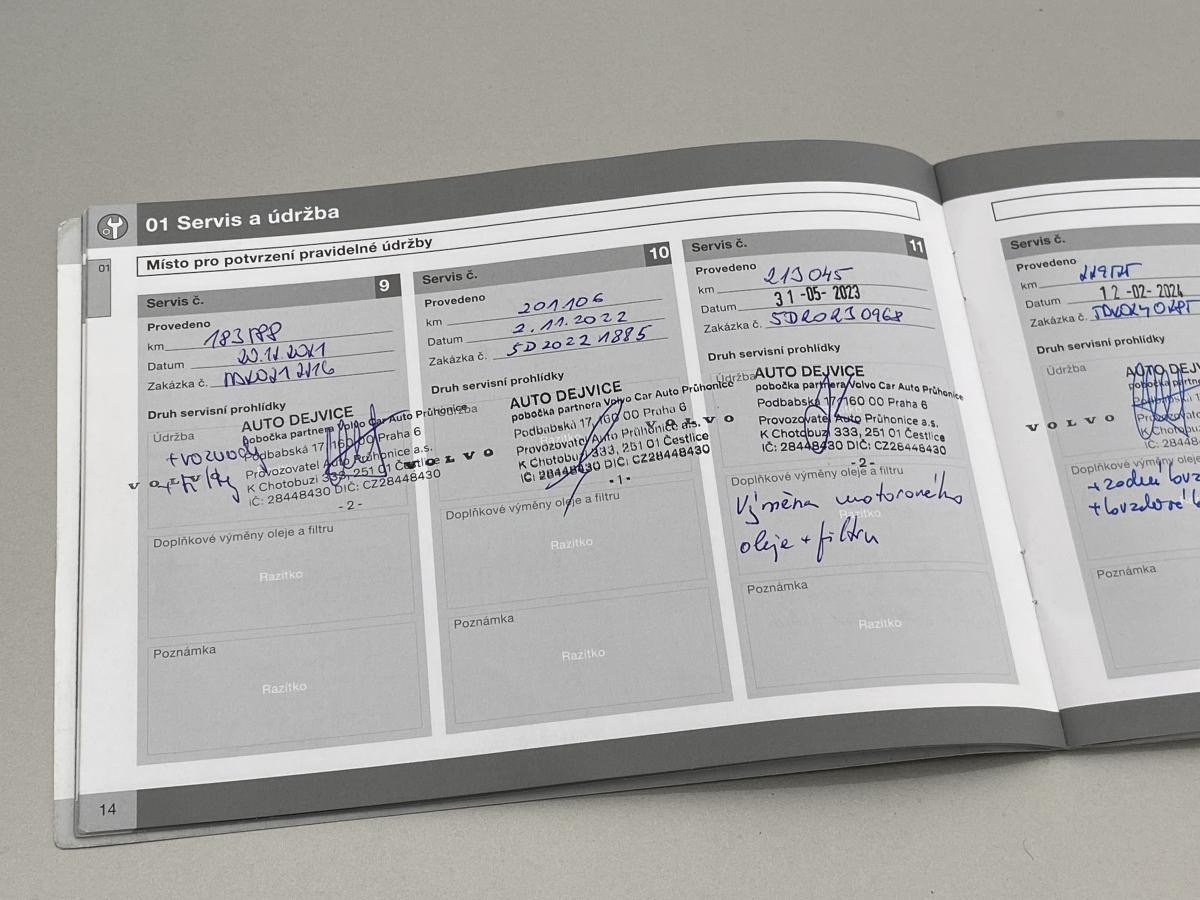 01 Servis a údržba
01
Místo pro potvrzení pravidelné údržby
Servis č. 9
Provedeno
km
Datum
Zakázka č.
Druh servisní prohlídky
Údržba
AUTO DEJVICE
pobočka partnera Volvo Car Auto Průhonice
Podbabská 17, 160 00 Praha 6
Provozovatel Auto Průhonice a.s.
K Chotobuzi 333, 251 01 Čestlice
IČ: 28448430 DIČ: CZ28448430
- 2 -
VOLVO
Doplňkové výměny oleje a filtru
Razítko
Poznámka
Razítko
Servis č. 10
Provedeno
km 201.106
Datum 2.11.2022
Zakázka č. SD2022 1885
Druh servisní prohlídky
Údržba
AUTO DEJVICE
pobočka partnera Volvo Car Auto Průhonice
Podbabská 17, 160 00 Praha 6
Provozovatel Auto Průhonice a.s.
K Chotobuzi 333, 251 01 Čestlice
IČ: 28448430 DIČ: CZ28448430
- 1 -
VOLVO
Doplňkové výměny oleje a filtru
Razítko
Poznámka
Razítko
Servis č. 11
Provedeno
km 213 045
Datum 31 -05- 2023
Zakázka č. SDR0230968
Druh servisní prohlídky
Údržba
AUTO DEJVICE
pobočka partnera Volvo Car Auto Průhonice
Podbabská 17, 160 00 Praha 6
Provozovatel Auto Průhonice a.s.
K Chotobuzi 333, 251 01 Čestlice
IČ: 28448430 DIČ: CZ28448430
- 2 -
VOLVO
Doplňkové výměny oleje a filtru
Výměna motorového
oleje + filtru
Razítko
Poznámka
Razítko
Servis č.
Provedeno
km
Datum 12 -02- 2024
Zakázka č.
Druh servisní prohlídky
Údržba
VOLVO
Doplňkové výměny oleje
Poznámka
14